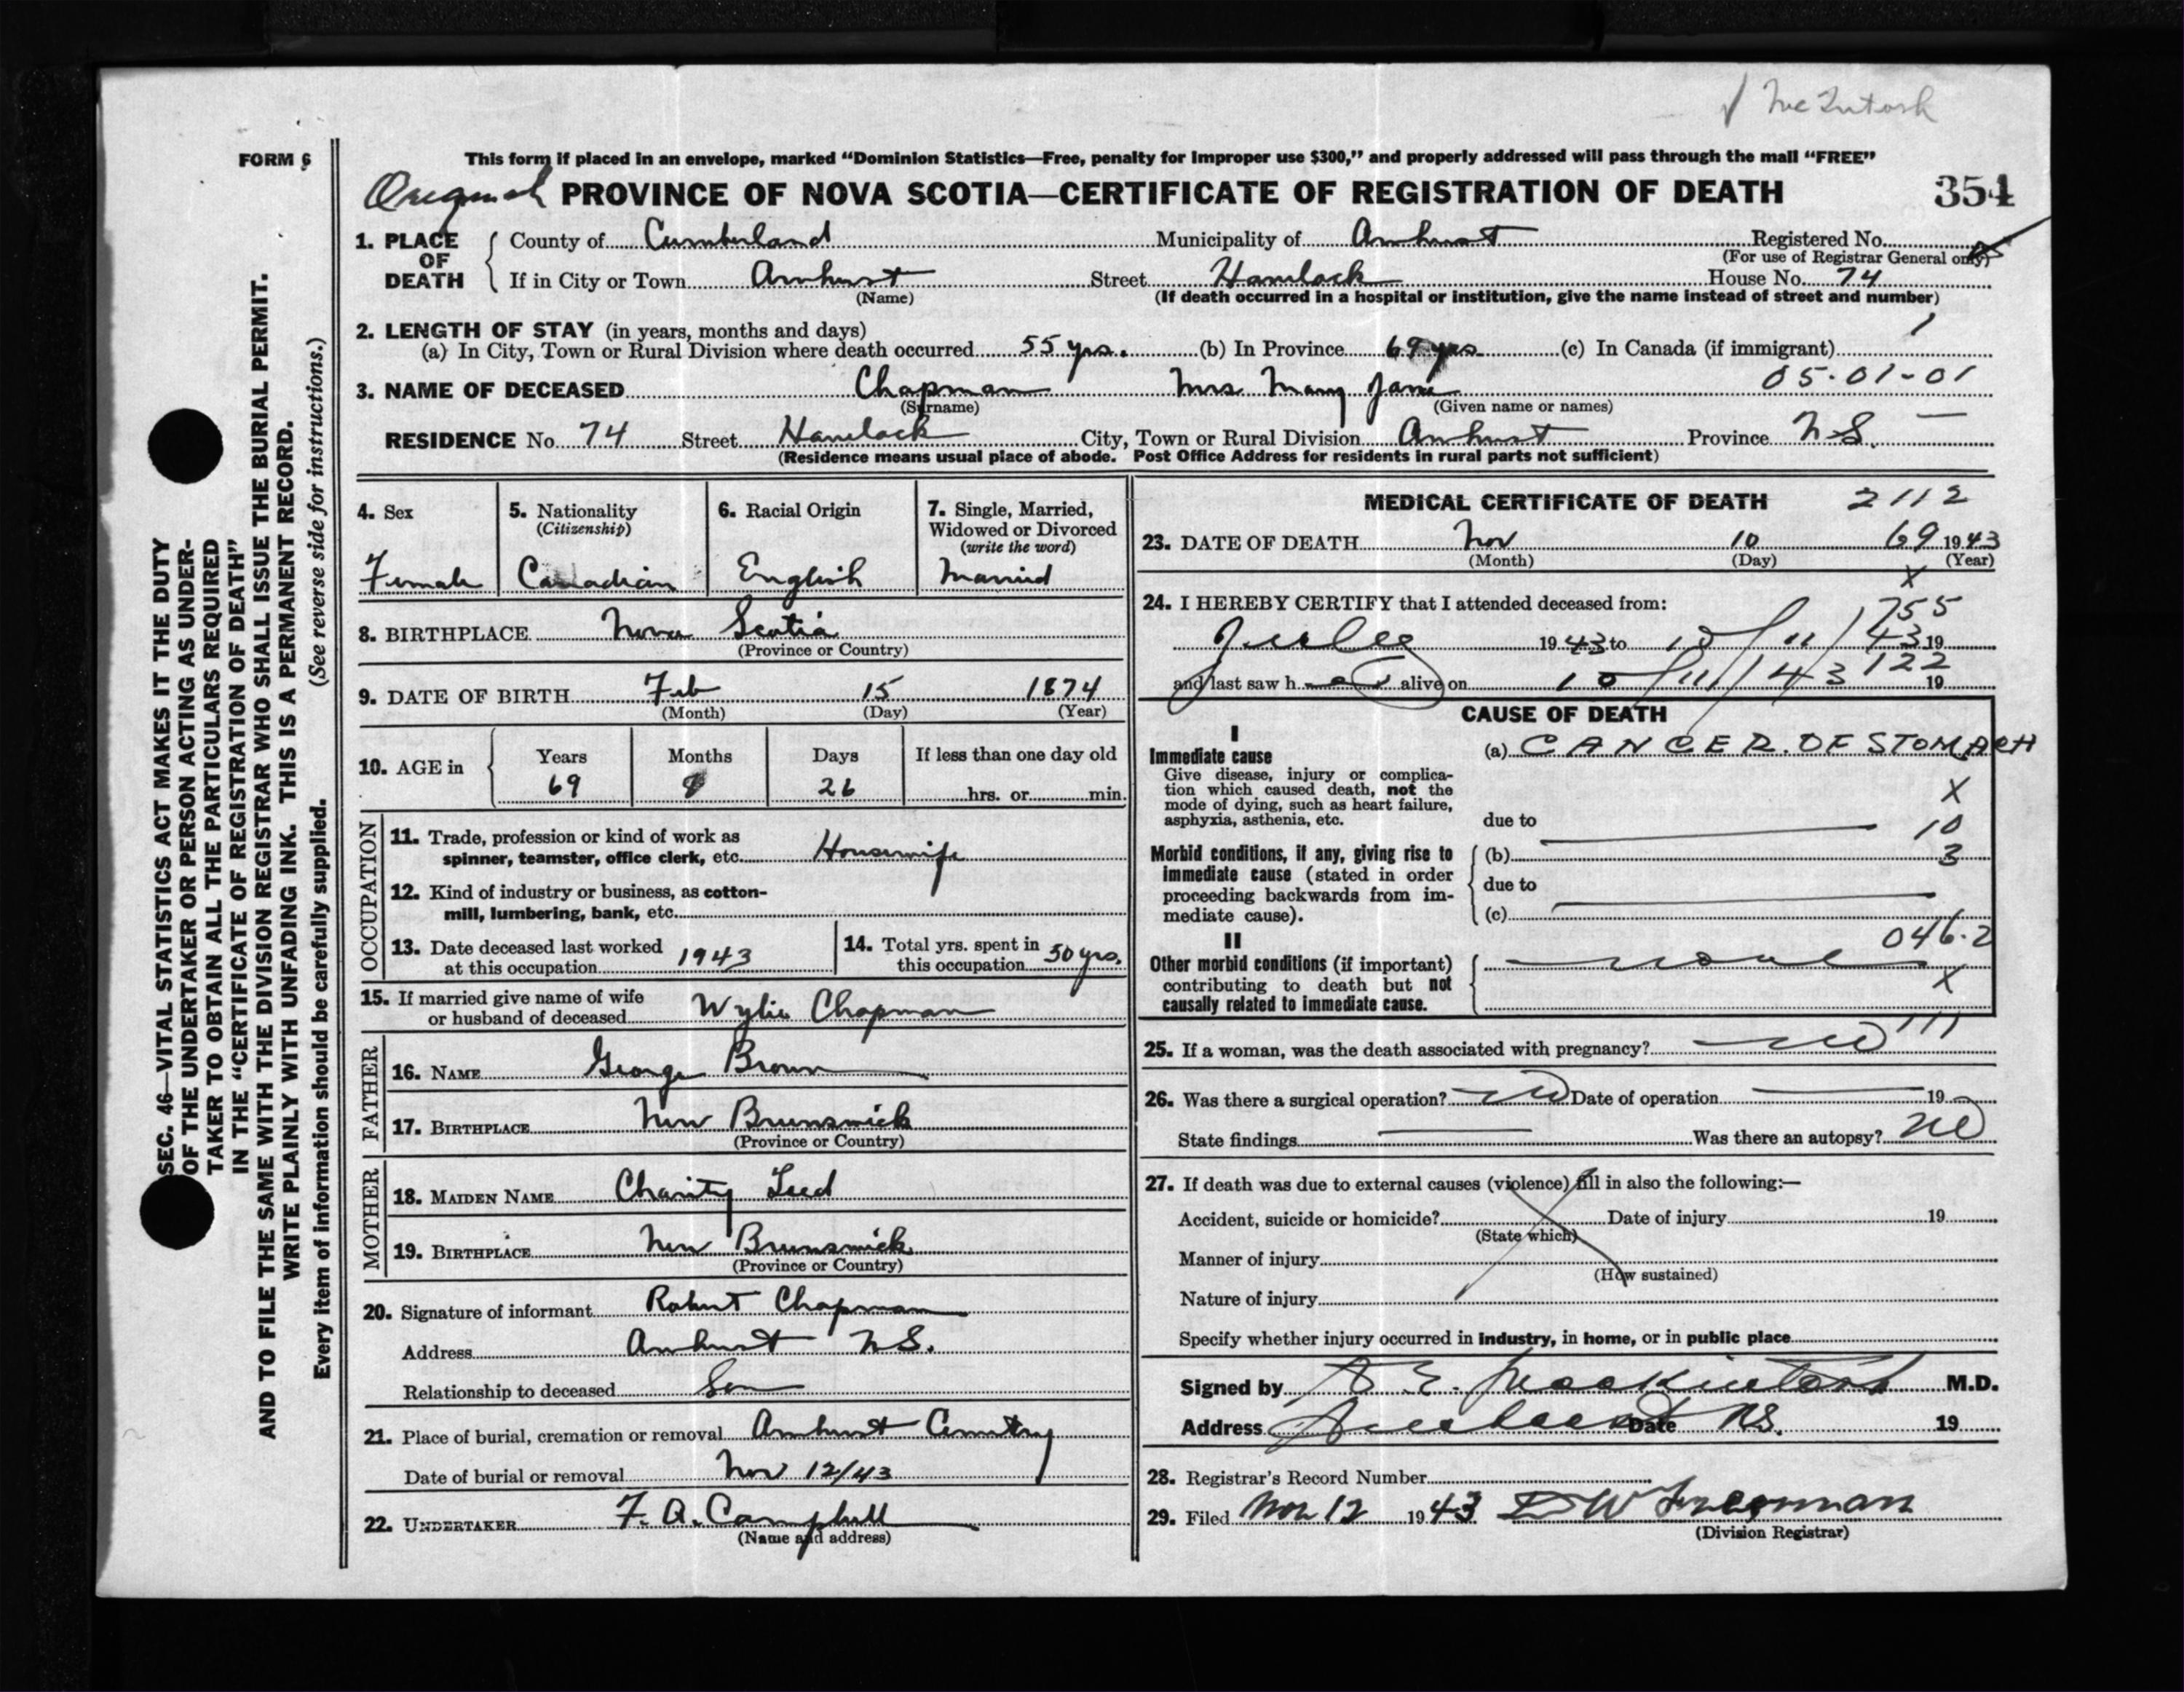 √ McIntosh
FORM 6
This form if placed in an envelope, marked “Dominion Statistics—Free, penalty for improper use $300,” and properly addressed will pass through the mail “FREE”
Original PROVINCE OF NOVA SCOTIA—CERTIFICATE OF REGISTRATION OF DEATH 354
1. PLACE OF DEATH
County of Cumberland Municipality of Amherst Registered No.
(For use of Registrar General only)
If in City or Town Amherst Street Havelock House No. 74
(Name) (If death occurred in a hospital or institution, give the name instead of street and number)
2. LENGTH OF STAY (in years, months and days)
(a) In City, Town or Rural Division where death occurred 55 yrs. (b) In Province 69 yrs (c) In Canada (if immigrant)
3. NAME OF DECEASED Chapman Mrs Mary Jane 05-01-01
(Surname) (Given name or names)
RESIDENCE No. 74 Street Havelock City, Town or Rural Division Amherst Province N.S. —
(Residence means usual place of abode. Post Office Address for residents in rural parts not sufficient)
4. Sex
Female
5. Nationality
(Citizenship)
Canadian
6. Racial Origin
English
7. Single, Married, Widowed or Divorced
(write the word)
Married
8. BIRTHPLACE Nova Scotia
(Province or Country)
9. DATE OF BIRTH Feb 15 1874
(Month) (Day) (Year)
10. AGE in
Years Months Days If less than one day old
69 8 26 hrs. or min.
OCCUPATION
11. Trade, profession or kind of work as
spinner, teamster, office clerk, etc. Housewife
12. Kind of industry or business, as cotton-
mill, lumbering, bank, etc.
13. Date deceased last worked
at this occupation 1943
14. Total yrs. spent in
this occupation 50 yrs.
15. If married give name of wife
or husband of deceased Wylie Chapman
FATHER
16. NAME George Brown
17. BIRTHPLACE New Brunswick
(Province or Country)
MOTHER
18. MAIDEN NAME Charity
19. BIRTHPLACE New Brunswick
(Province or Country)
20. Signature of informant Robert Chapman
Address Amherst N.S.
Relationship to deceased Son
21. Place of burial, cremation or removal Amherst Cemetry
Date of burial or removal Nov 12/43
22. UNDERTAKER F. A. Campbell
(Name and address)
MEDICAL CERTIFICATE OF DEATH 2112
23. DATE OF DEATH Nov 10 69 1943
(Month) (Day) (Year)
X
24. I HEREBY CERTIFY that I attended deceased from: 1755
July 1943 to 10/11/43 19
and last saw her alive on 10/11/43 122 19
CAUSE OF DEATH
I
Immediate cause
Give disease, injury or complica-
tion which caused death, not the
mode of dying, such as heart failure,
asphyxia, asthenia, etc.
(a) CANCER OF STOMACH
X
due to
10
Morbid conditions, if any, giving rise to
immediate cause (stated in order
proceeding backwards from im-
mediate cause).
(b) 3
due to
(c)
046.2
II
Other morbid conditions (if important)
contributing to death but not
causally related to immediate cause.
none
X
25. If a woman, was the death associated with pregnancy? no 111
26. Was there a surgical operation? no Date of operation 19
State findings Was there an autopsy? no
27. If death was due to external causes (violence) fill in also the following:—
Accident, suicide or homicide? Date of injury 19
(State which)
Manner of injury
(How sustained)
Nature of injury
Specify whether injury occurred in industry, in home, or in public place
Signed by A E. Mackintosh M.D.
Address Amherst Date NS. 19
28. Registrar's Record Number
29. Filed Nov 12 1943
(Division Registrar)
SEC. 46—VITAL STATISTICS ACT MAKES IT THE DUTY
OF THE UNDERTAKER OR PERSON ACTING AS UNDER-
TAKER TO OBTAIN ALL THE PARTICULARS REQUIRED
IN THE “CERTIFICATE OF REGISTRATION OF DEATH”
AND TO FILE THE SAME WITH THE DIVISION REGISTRAR WHO SHALL ISSUE THE BURIAL PERMIT.
WRITE PLAINLY WITH UNFADING INK. THIS IS A PERMANENT RECORD.
Every item of information should be carefully supplied. (See reverse side for instructions.)